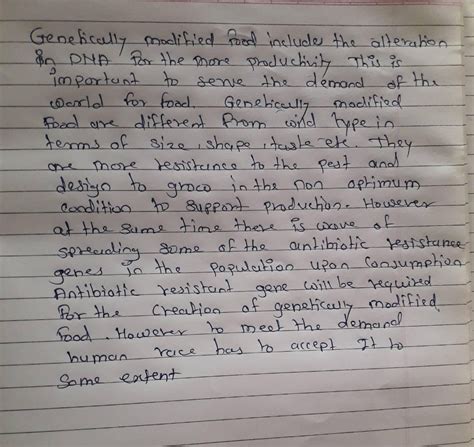 Genetically modified food include the alteration
in DNA for the more productivity This is
important to serve the demand of the
world for food. Genetically modified
Food are different from wild type in
terms of size, shape, taste etc. They
are more resistance to the pest and
design to grow in the non optimum
condition to support production. However
at the same time there is wave of
spreading some of the antibiotic resistance
genes in the population upon consumption
Antibiotic resistant gene will be required
for the creation of genetically modified
food. However to meet the demand
human race has to accept It to
some extent